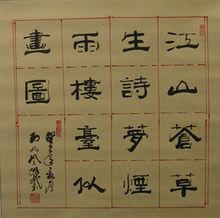 江山蒼草
生詩夢煙
雨樓臺似
畫圖